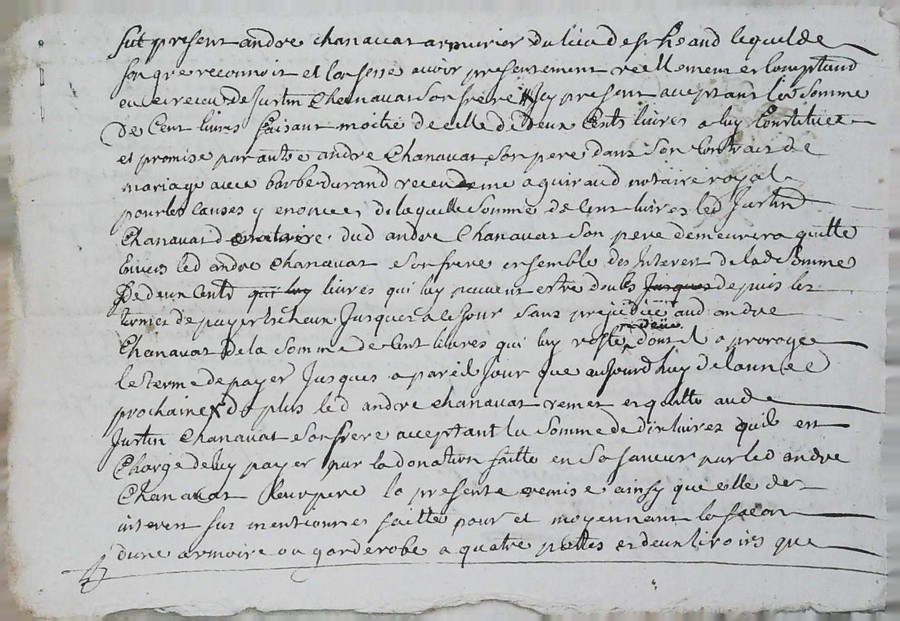 fut present andre chanavat armurier du lieu de st heand lequel de
son gre reconnoit et confesse avoir presentement reellement et comptand
eu et receu de justin Chanavat son frere icy present acceptant la somme
de Cent livres faisant moitié de celle de deux Cents livres a luy Constituee
et promise par autre andre Chanavat son pere dans son Contrat de
mariage avec barbe durand receu de me aguiraud notaire royal
pour les causes y enoncees de laquelle somme de cent livres led justin
Chanavat donataire dud andre Chanavat son pere demeurera quitte
Envers led andre Chanavat son frere ensemble des interest de lad somme
De deux Cents qui luy livres qui luy peuvent estre deubs jusques depuis les
termes de payer Echeux jusques a ce jour sans prejudice aud andre
Chanavat De la somme de Cent livres qui luy reste deüe dont il a prorogé
le terme de payer jusques a pareil jour que aujourd'huy de l'année
prochaine De plus led andre chanavat remet et quitte aud
justin Chanavat son frere acceptant la somme de dix livres quil est
Chargé de luy payer par la donation faitte en sa faveur par led andre
Chanavat leur pere la presente remise ainsy que celle des
interest sus mentionnes faitte pour et moyennant la facon
d'une armoire ou garderobe a quatre portes et deux tiroirs que